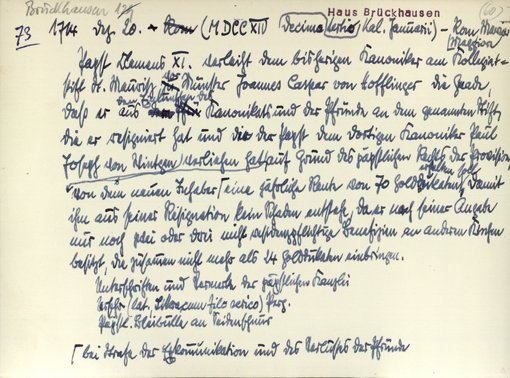 Brückhausen
Haus Brückhausen
73 1714 Dez. 20. Rom (MDCCXIV Decimo tertio Kal. Januarii) – Rom Maria Maggiore
Papst Clemens XI. verleiht dem bisherigen Kanoniker am Kollegiat-
stift St. Mauritz vor Münster Joannes Caspar von Höfflinger die Gnade,
daß er aus den Einkünften des Kanonikats und der Pfründe an dem genannten Stift,
die er resigniert hat und die der Papst dem dortigen Kanoniker Paul
Joseph von Wintgen verliehen hat, auf Grund des päpstlichen Rechts der Provision,
von dem neuen Inhaber eine jährliche Rente von 70 Golddukaten erhalten soll, damit
ihm aus seiner Resignation kein Schaden entstehe, da er nach seiner Angabe
nur noch zwei oder drei nicht residenzpflichtige Benefizien an anderen Kirchen
besitzt, die zusammen nicht mehr als 24 Golddukaten einbringen.
Unterschriften und Vermerk der päpstlichen Kanzlei
Ausf. (lat. Litterae cum filo serico) Perg.
Päpstl. Bleibulle an Seidenschnur
bei Strafe der Exkommunikation und des Verlustes der Pfründe